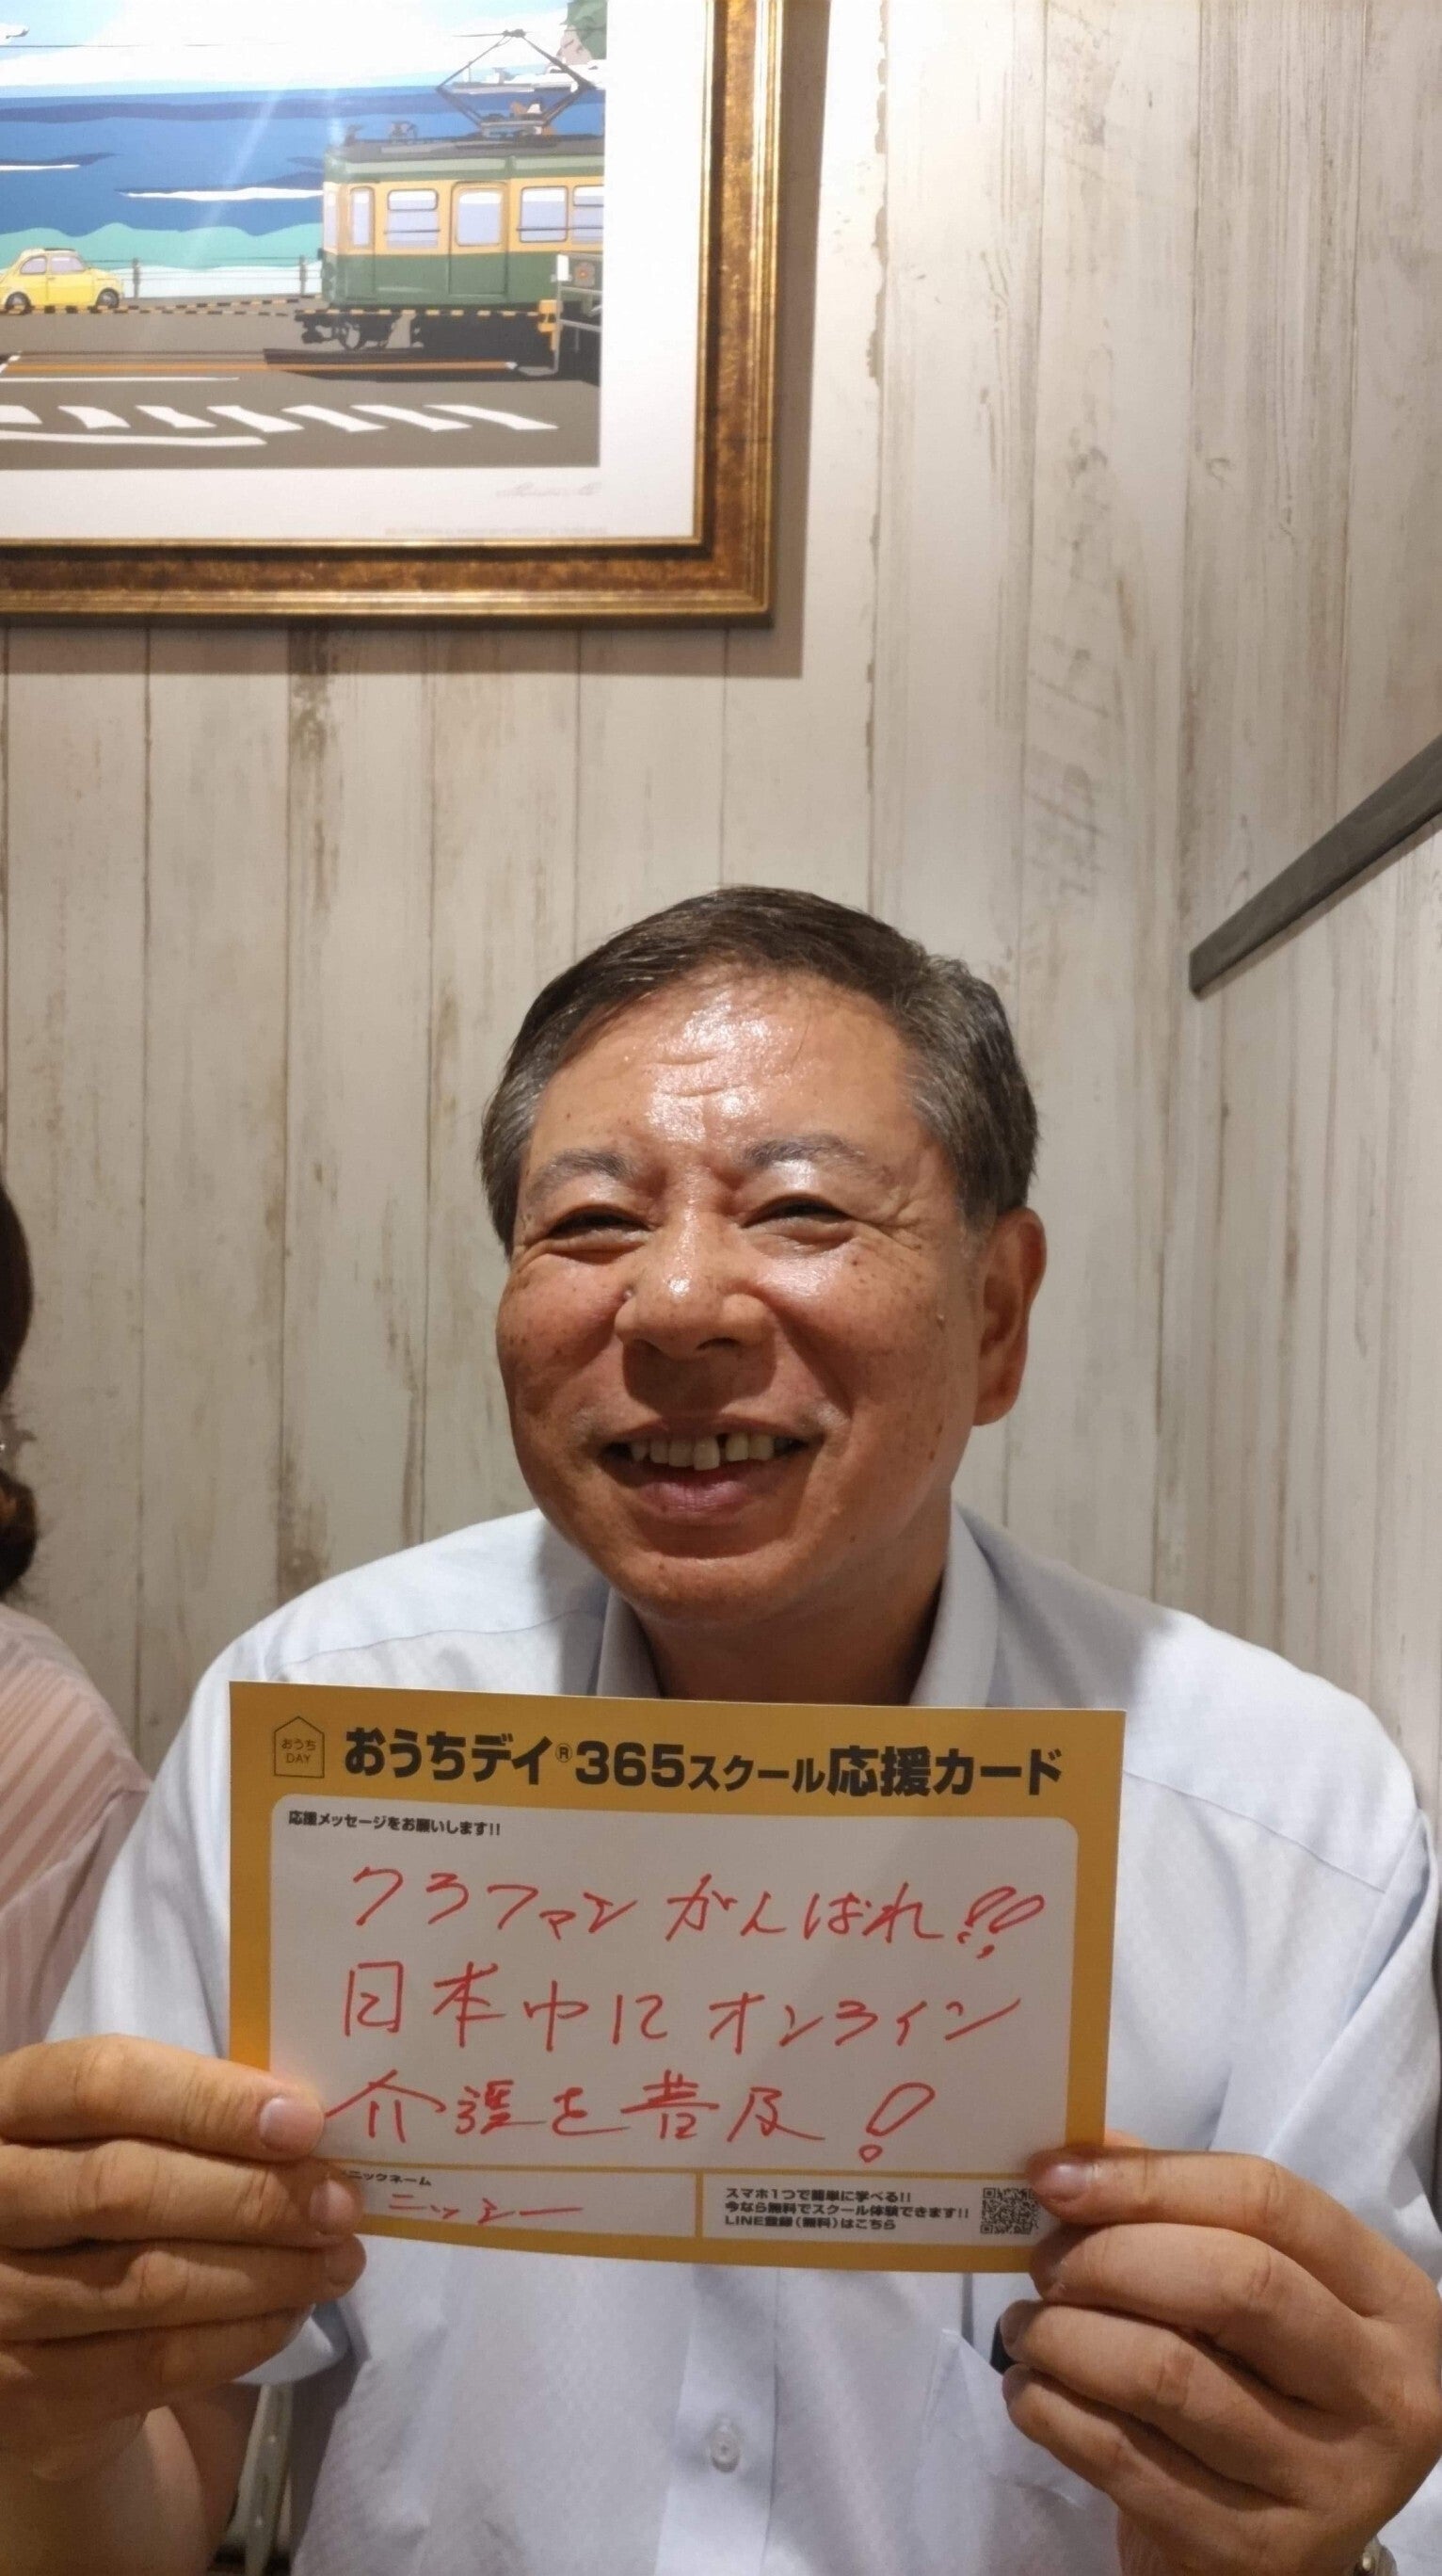 おうち
DAY
おうちデイ®365スクール応援カード
応援メッセージをお願いします!!
クラファンがんばれ!!
日本中にオンライン
介護を普及!
ニックネーム
ニッシー
スマホ1つで簡単に学べる!!
今なら無料でスクール体験できます!!
LINE登録(無料)はこちら